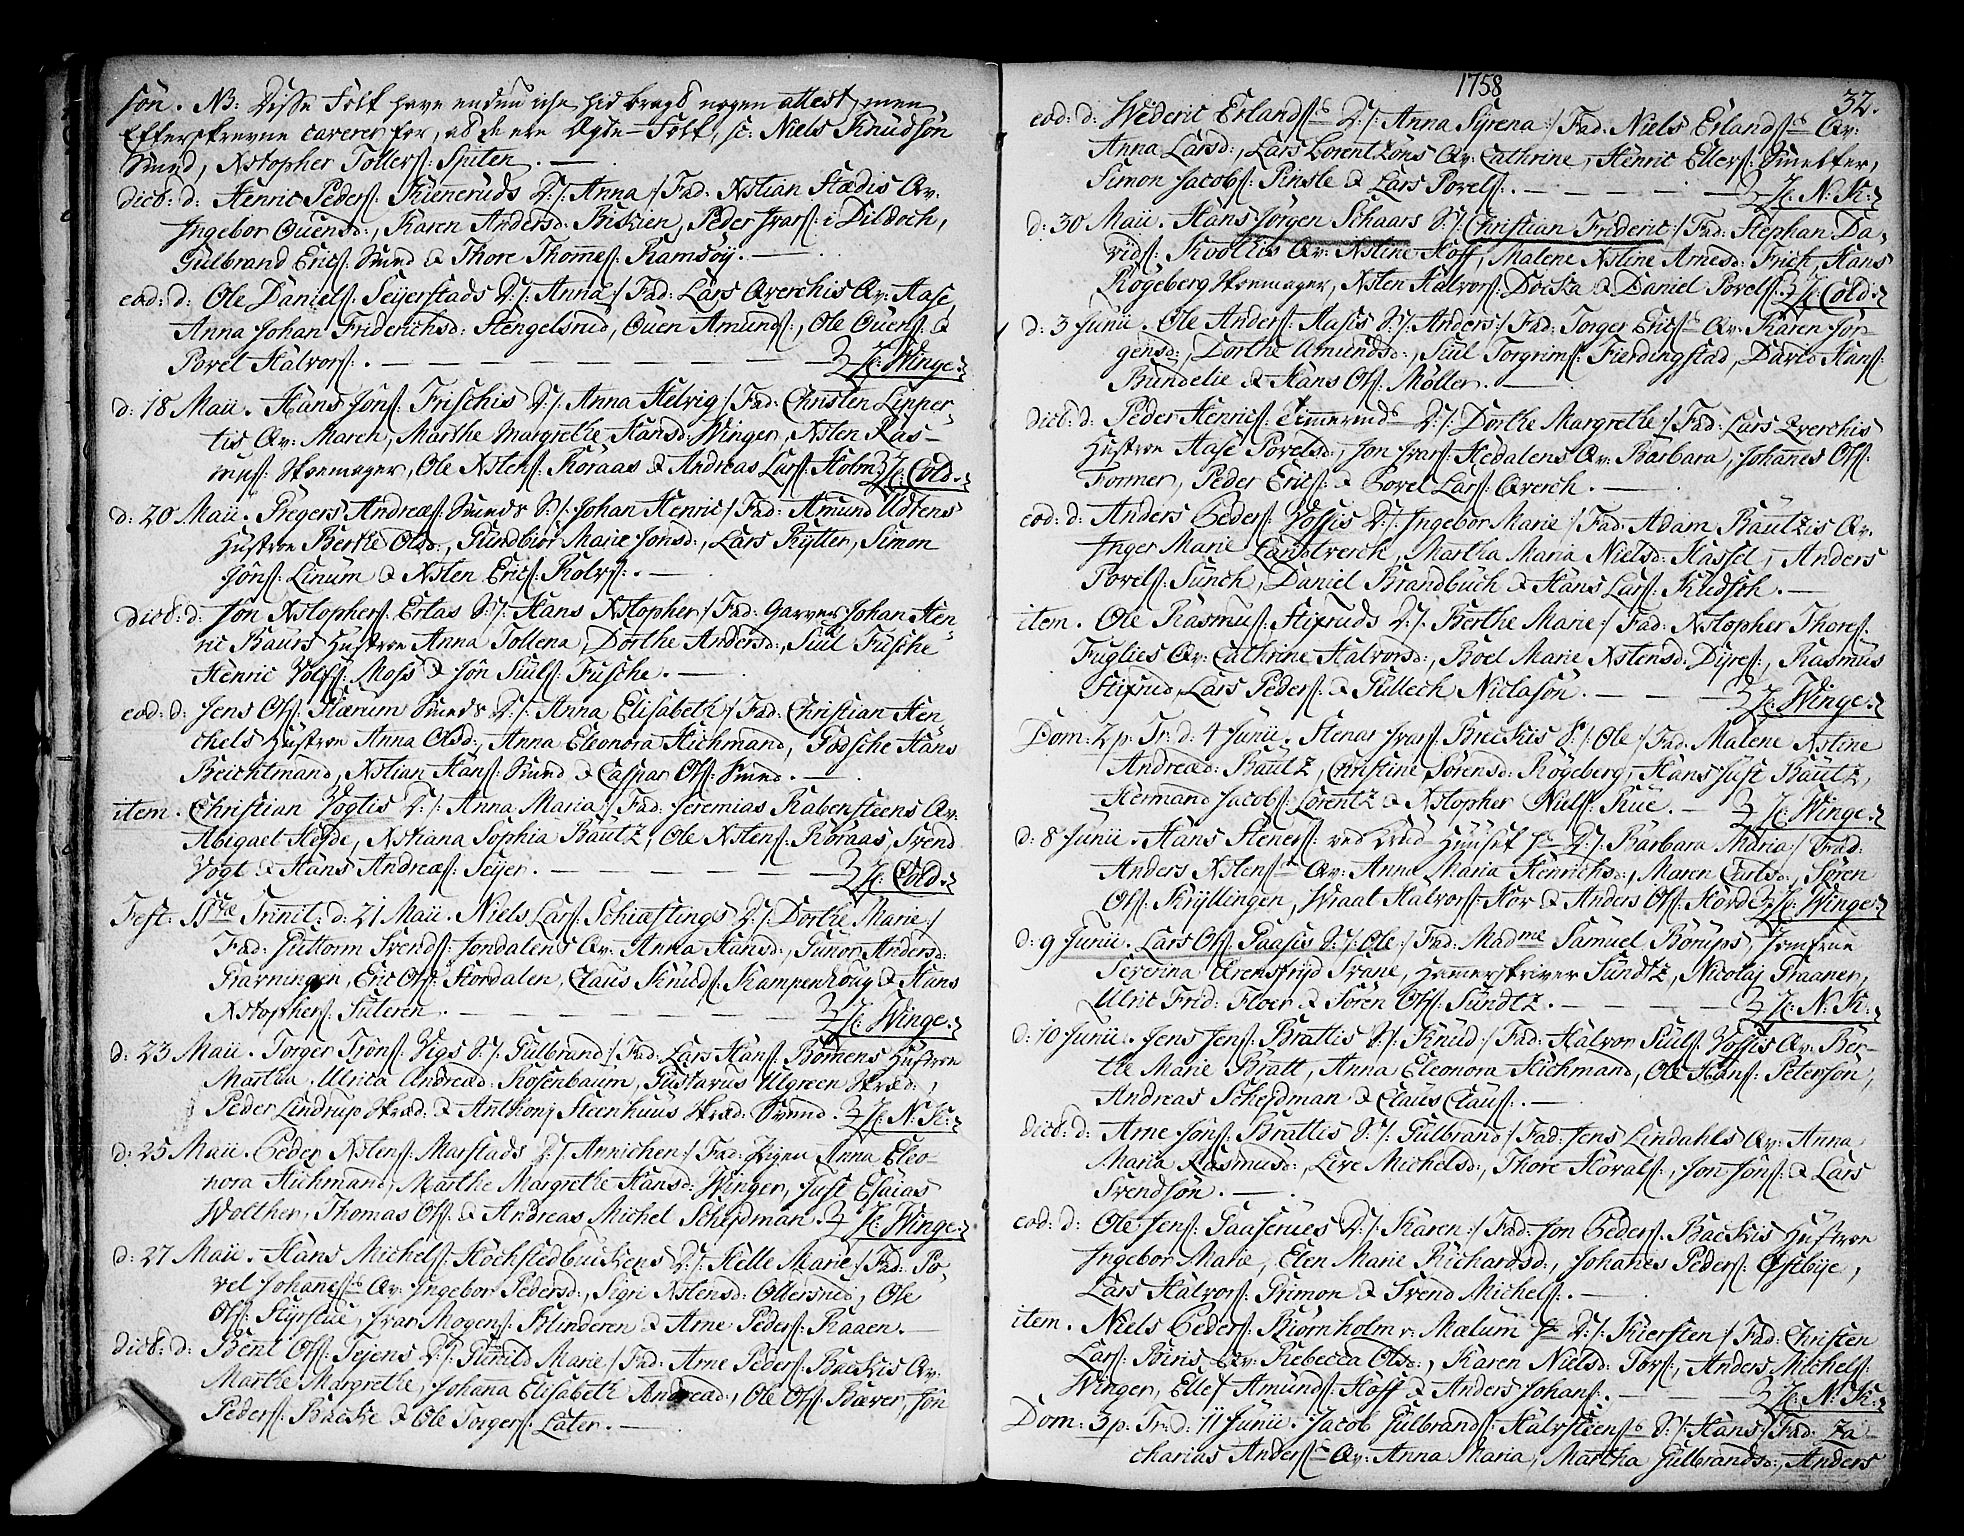 søn. NB: Disse Folk have endnu iche hid bragt nogen attest, men
Efterskrevne caverer for, at de ere Ægte-Folk, sc: Niels Knudsøn
Smed, Xstopher Tollefs: Spiten. —
dict: d: Henric Peders: Kieneruds D:/: Anna :/ Fad: Xstian Stædis Qv:
Ingebor Ouensd:, Karen Andersd: Friskien, Peder Ivars: i Dildoch,
Gulbrand Erics: Smed & Thore Thommes: Ramsøy. —
eod: d: Ole Daniels: Seyerstads D:/: Anna :/ Fad: Lars Qverchis Qv: Aase,
Anna Johan Friderichsd: Stengelsrud, Ouen Amunds:, Ole Ouens: &
Povel Halvors: . — H: Winge.
d: 18 Maii. Hans Jons: Frischis D:/: Anna Helvig :/ Fad: Christen Lipper-
tis Qv: Maren, Marthe Margrethe Hansd: Winger, Xsten Ras-
mus: Skoemager, Ole Xstens: Roraas & Andreas Lars: Holm. H: Cold.
d: 20 Maii. Regers Andreæs: Smeds S:/: Johan Henric :/ Fad: Amund Udtens
Hustroe Berthe Olsd:, Gundbior Marie Jonsd:, Lars Rytter, Simon
Jons: Linum & Xsten Erics: Kolvs: . —
dict: d: Jon Xstophers: Ertas S:/: Hans Xstopher :/ Fad: Garver Johan Hen-
ric Baurs Hustroe Anna Tollena, Dorthe Andersd:, Siul Fusche
Henric Volfs: Moss & Jon Siuls: Fusche. —
eod: d: Jens Ols: Hærum Smeds D:/: Anna Elisabeth :/ Fad: Christian Hen-
chels Hustroe Anna Olsd:, Anna Eleonora Hichmand, Hans
Beichtmand, Xstian Hans: Smed & Caspar Ols: Smed. —
item. Christian Vogtis D:/: Anna Maria :/ Fad: Jeremias Rabensteens Qv:
Abigael Heyde, Xstiana Sophia Bautz, Ole Xstens: Roraas, Svend
Vogt & Hans Andreæs: Seyer. — H: Cold.
Fest: SStæ Trinit: d: 21 Maii. Niels Lars: Schiæftings D:/: Dorthe Marie :/
Fad: Guttorm Svends: Jondalens Qv: Anna Hansd:, Gunor Andersd:
Gravningen, Eric Ols: Stordalen, Claus Knuds: Kampenhoug & Hans
Xstophers: Suteren. — H: Winge.
d: 23 Maii. Torger Trons: Vigs S:/: Gulbrand :/ Fad: Lars Hans: Bømens Hustroe
Martha Ulrica Andreæd: Rosenbaum, Gustavus Ulgreen Skræd:,
Peder Lindrup Skræd: & Anthonj Steenhuus Skræd: Svend. H: N: K:
d: 25 Maii. Peder Xstens: Marstads D:/: Annichen :/ Fad: Pigen Anna Eleo-
nora Hichmand, Marthe Margrethe Hansd: Winger, Just Esaias
Wolther, Thomas Ols: & Andreas Michel Scheydman. H: Winge.
d: 27 Maii. Hans Michels: Hochstedbachens D:/: Helle Marie :/ Fad: Po-
vel Johannes: Qv: Ingebor Pedersd:, Sigri Xstensd: Ollersrud, Ole
Ols: Hyrstue, Ivar Mogens: Blinderen & Arne Peders: Raaen. —
dict: d: Bent Ols: Tejens D:/: Gunild Marie :/ Fad: Arne Peders: Backis Qv:
Marthe Margrethe, Johanna Elisabeth Andreæd:, Ole Ols: Bæver, Jon
Peders: Backe & Ole Torgers: Later. —
1758
32.
eod: d: Wederic Erlands: D:/: Anna Syrena :/ Fad: Niels Erlands: Qv:
Anna Larsd:, Lars Lorentzøns Qv: Cathrine, Henric Ellers: Smelter,
Simon Jacobs: Pinsle & Lars Povels: . — H: N: K:
d: 30 Maii. Hans Jørgen Schaars S:/: Christian Frideric :/ Fad: Stephan Da-
vids: Kvollies Qv: Xstine Hoff, Malene Xstine Arnesd: Frick, Hans
Røgeberg Skoemager, Xsten Halvors: Docka & Daniel Povels: H: Cold.
d: 3 Junii. Ole Anders: Aasis S:/: Anders :/ Fad: Torger Erics: Qv: Karen Jør-
gensd:, Dorthe Amundsd:, Siul Torgrims: Fierdingstad, David Hans:
Bundelie & Hans Ols: Møller. —
dict: d: Peder Henrics: Timmerud D:/: Dorthe Margrethe :/ Fad: Lars Qverchis
Hustroe Aase Povelsd:, Jon Ivars: Hedalens Qv: Barbara, Johannes Ols:
Former, Peder Erics: & Povel Lars: Qverch. —
eod: d: Anders Peders: Vossis D:/: Ingebor Marie :/ Fad: Adam Bautzis Qv:
Inger Marie Landtverch, Martha Maria Nielsd: Hassel, Anders
Povels: Sunch, Daniel Brandbuch & Hans Lars: Kudsch. —
item. Ole Rasmus: Stifruds D:/: Berthe Marie :/ Fad: Xstopher Thores:
Fuglies Qv: Cathrine Halvorsd:, Boel Marie Xstensd: Dyres:, Rasmus
Stifrud, Lars Peders: & Gullech Niclasøn. — H: Winge.
Dom: 2 p: Tr: d: 4 Junii. Stenar Ivars: Breckis S:/: Ole :/ Fad: Malene Xstine
Andreæd: Bautz, Christine Sørensd: Røgeberg, Hans Just Bautz,
Hermand Jacobs: Lorentz & Xstopher Niels: Rue. — H: Winge.
d: 8 Junii. Hans Steners: ved Huuset D:/: Barbara Maria :/ Fad:
Anders Xstens: Qv: Anna Maria Henrichsd:, Maren Carlsd:, Søren
Ols: Kryllingen, Wraal Halvors: Kor & Anders Ols: Horde. H: Winge.
d: 9 Junii. Lars Ols: Gaasis S:/: Ole :/ Fad: Madme Samuel Borups, Jomfrue
Severina Arensfryd Svane, Hammerskriver Sundtz, Nicolaj Graaner,
Ulric Frid: Floer & Søren Ols: Sundtz. — H: N: K:
d: 10 Junii. Jens Jens: Brattis S:/: Knud :/ Fad: Halvor Siuls: Vossis Qv: Ber-
the Marie Bratt, Anna Eleonora Hichmand, Ole Hans: Petersøn,
Andreas Scheydman & Claus Claus: . —
dict: d: Arne Jons: Brattis S:/: Gulbrand :/ Fad: Jens Lindahls Qv: Anna
Maria Rasmusd:, Live Michelsd:, Thore Hovals:, Jon Jons: & Lars
Svendsøn. —
eod: d: Ole Jens: Gaaserues D:/: Karen :/ Fad: Jon Peders: Backis Hustroe
Ingebor Marie, Elen Marie Richardsd:, Johanes Peders: Øsebye,
Lars Halvors: Grimon & Svend Michels: . —
item. Niels Peders: Biørnholm v: Mælum D:/: Kiersten :/ Fad: Christen
Lars: Biris Qv: Rebecca Olsd:, Karen Nielsd: Tors:, Anders Michels:
Winger, Ellef Amunds: Hoff & Anders Johans: . — H: N: K:
Dom: 3 p: Tr: d: 11 Junii. Jacob Gulbrands: Halvsteens S:/: Hans :/ Fad: Za-
charias Anders: Qv: Anna Maria, Martha Gulbrandsd:, Anders